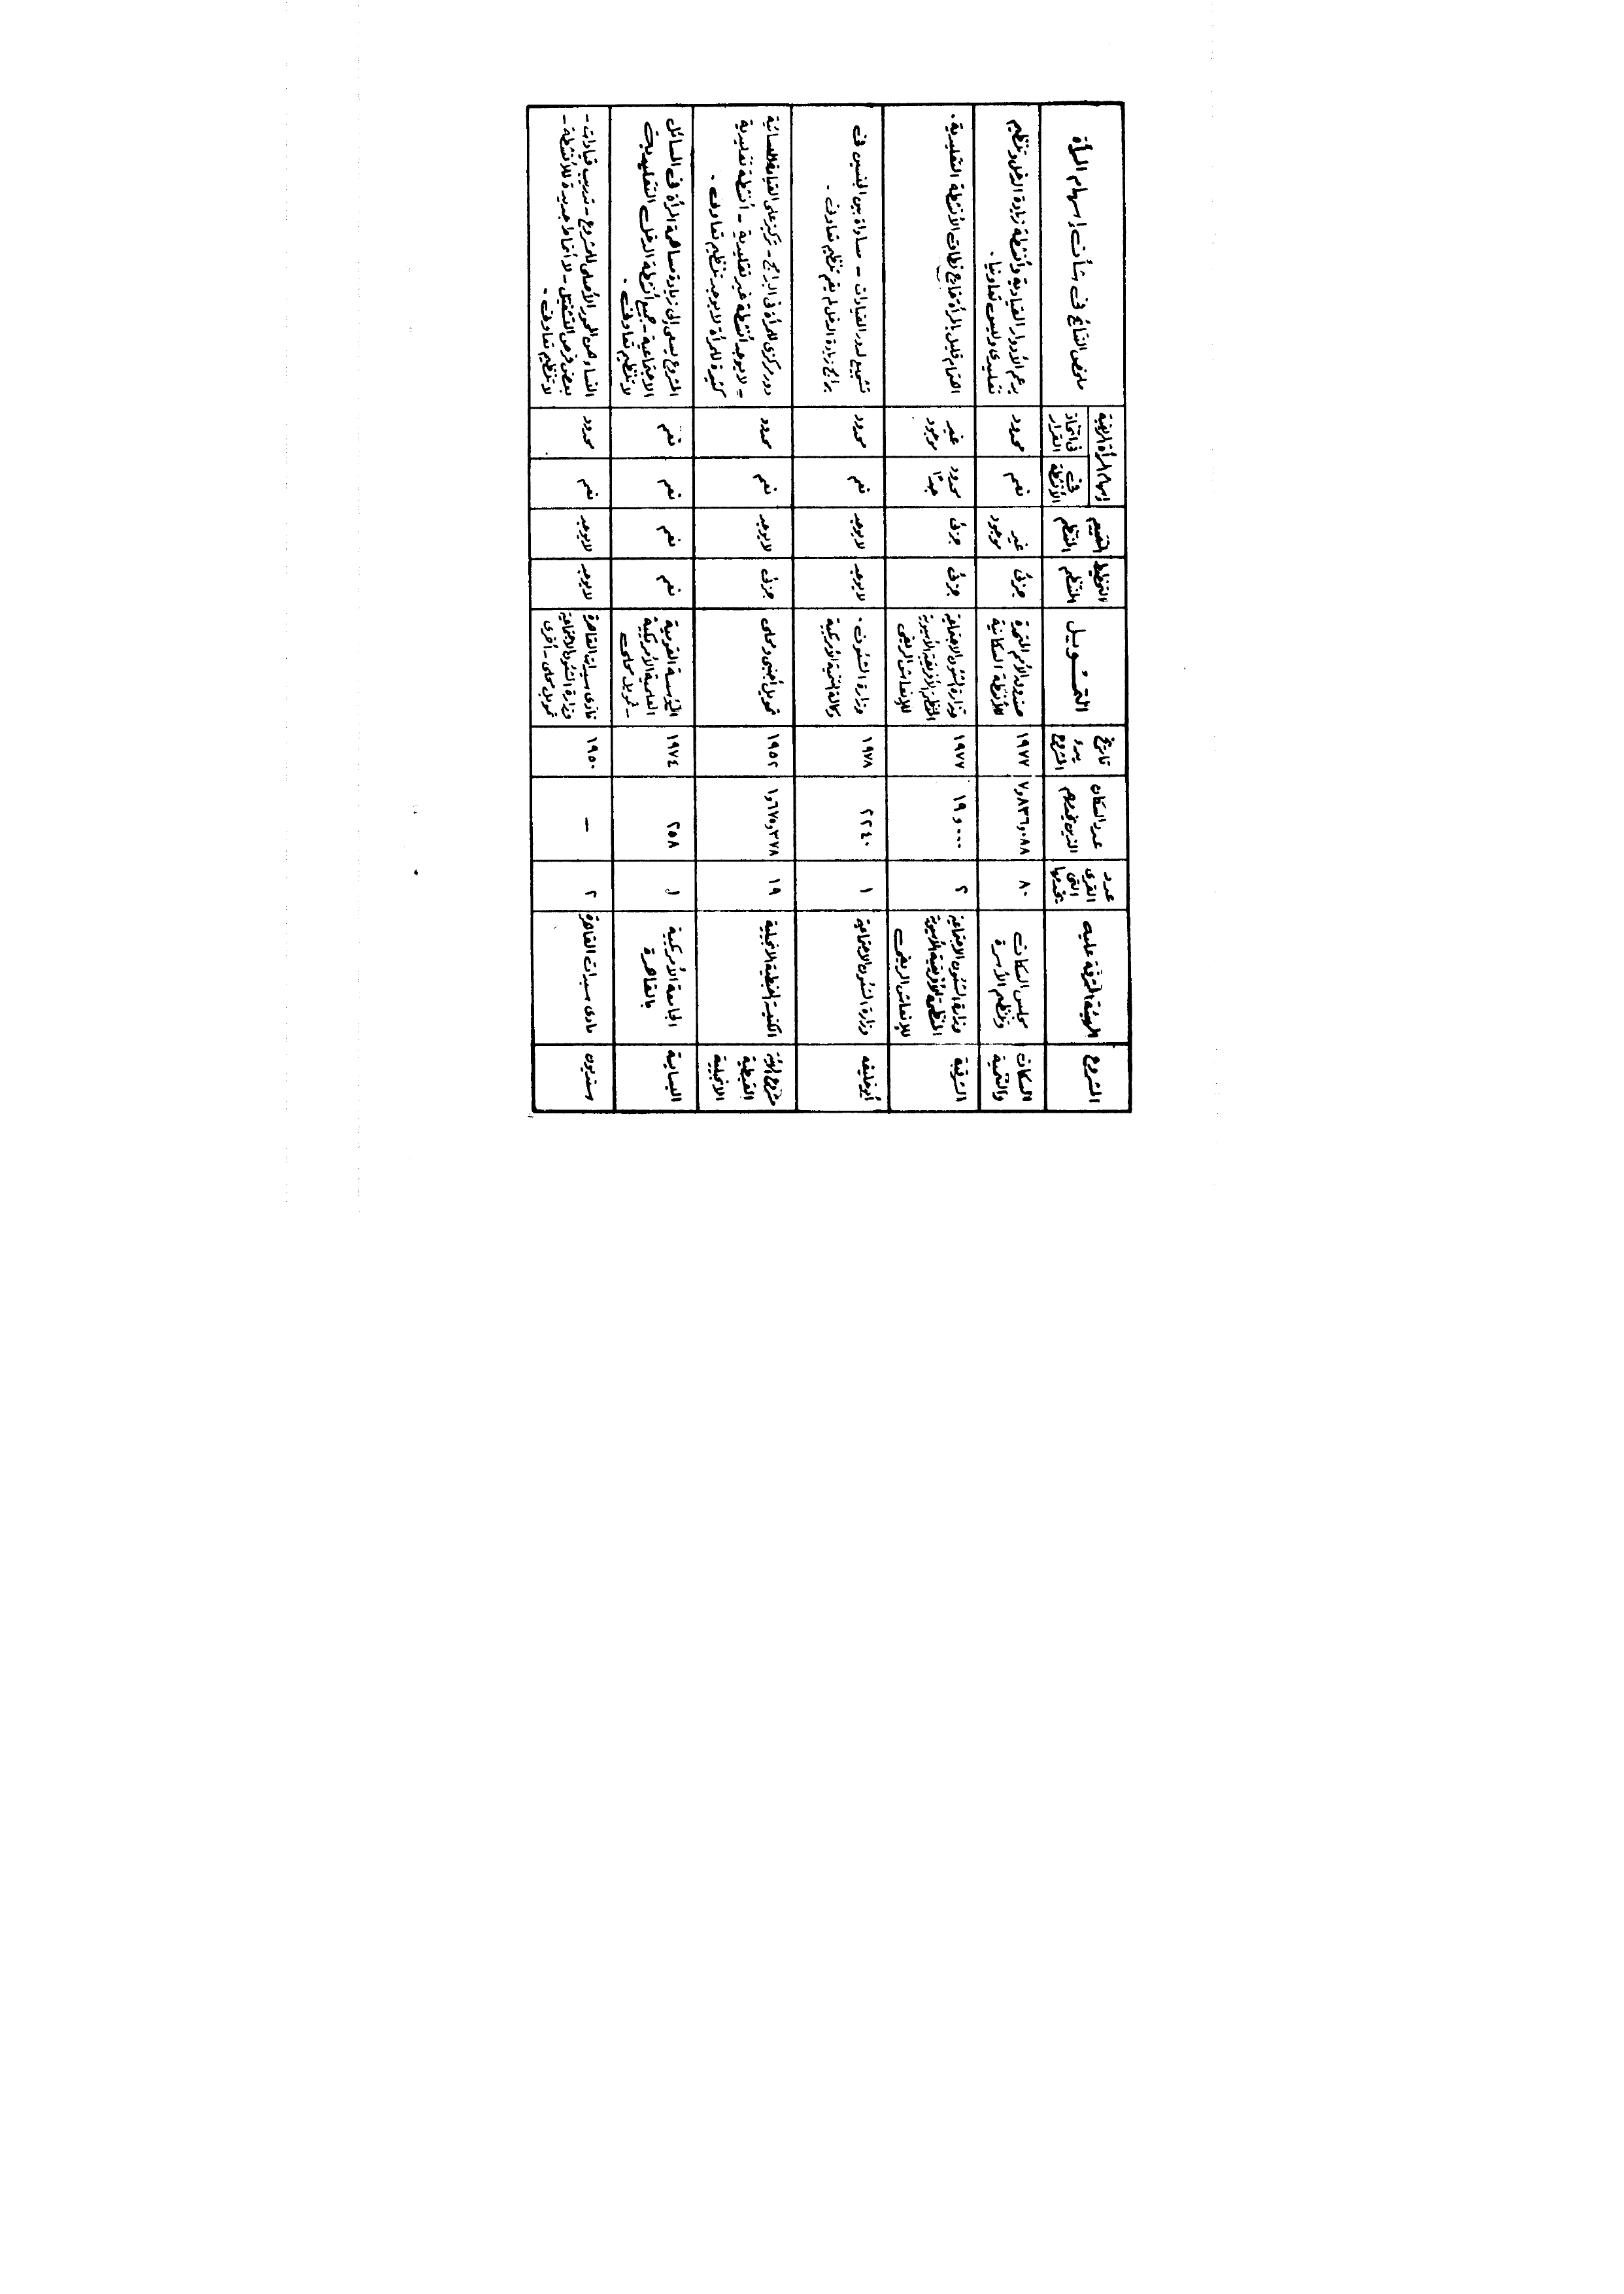 المشروع
الهيئة المشرفة عليه
عدد
القرى
التى
يخدمها
عدد السكان
الذين يخدمهم
تاريخ
بدء
المشروع
التمويل
التخطيط
المنظم
التقييم
المنظم
إسهام المرأة الريفية
فى
الأنشطة
فى اتخاذ
القرار
ملخص النتائج فى شأن إسهام المرأة
السكان
والتنمية
مجلس السكان
وتنظيم الأسرة
٨٠
٧٫٨٣٦٫٠٨٨
١٩٧٧
صندوق الأمم المتحدة
للأنشطة السكانية
جزئى
غير
موجود
نعم
محدود
يدعم الأدوار القيادية وأنشطة زيادة الدخل وتنظيم
تقليدى وليس تعاونيا.
الشرقية
وزارة الشئون الاجتماعية
المنظمة الأفريقية الآسيوية
للإنعاش الريفى
٢
١٩٫٠٠٠
١٩٧٧
وزارة الشئون الاجتماعية
المنظمة الأفريقية الآسيوية
للإنعاش الريفى
جزئى
جزئى
محدود
جدًا
غير
موجود
اهتمام قليل بالمرأة خارج نطاق الأنشطة التقليدية.
أبو خليفه
وزارة الشئون الاجتماعية
١
٢٢٤٠
١٩٧٨
وزارة الشئون.
وكالة التنمية الأمريكية
لا يوجد
لا يوجد
نعم
محدود
تشجيع لدور القيادات - مساواة بين الجنسين فى
برامج زيادة الدخل لم يقم تنظيم تعاونى.
القبطية
الانجيلية
الكنيسة القبطية الانجيلية
١٩
١٫٦٧٥٫٣٧٨
١٩٥٢
تمويل أجنبى ومحلى
جزئى
لا يوجد
نعم
محدود
دور مركزى للمرأة فى البرامج - تركيز على القيادة النسائية
- لا يوجد أنشطة غير تقليدية - أنشطة تقليدية
كثيرة للمرأة لا يوجد تنظيم تعاونى.
البساية
الجامعة الأمريكية
بالقاهرة
١
٢٥٨
١٩٧٤
المؤسسة القومية
العلمية الأمريكية
- تمويل محلى
نعم
نعم
نعم
نعم
المشروع يسعى إلى زيادة مساهمة المرأة فى المسائل
الاجتماعية - جميع أنشطة الدخل التقليدية
لا تنظيم تعاونى.
سنديون
نادى سيدات القاهرة
٢
-
١٩٥٠
نادى سيدات القاهرة
وزارة الشئون الاجتماعية
تمويل محلى - أخرى
لا يوجد
لا يوجد
نعم
محدود
النساء هن المحور الأصلى للمشروع - تدريب قيادات -
بعض فرص التشغيل - لا أنماط جديدة للأنشطة -
لا تنظيم تعاونى.